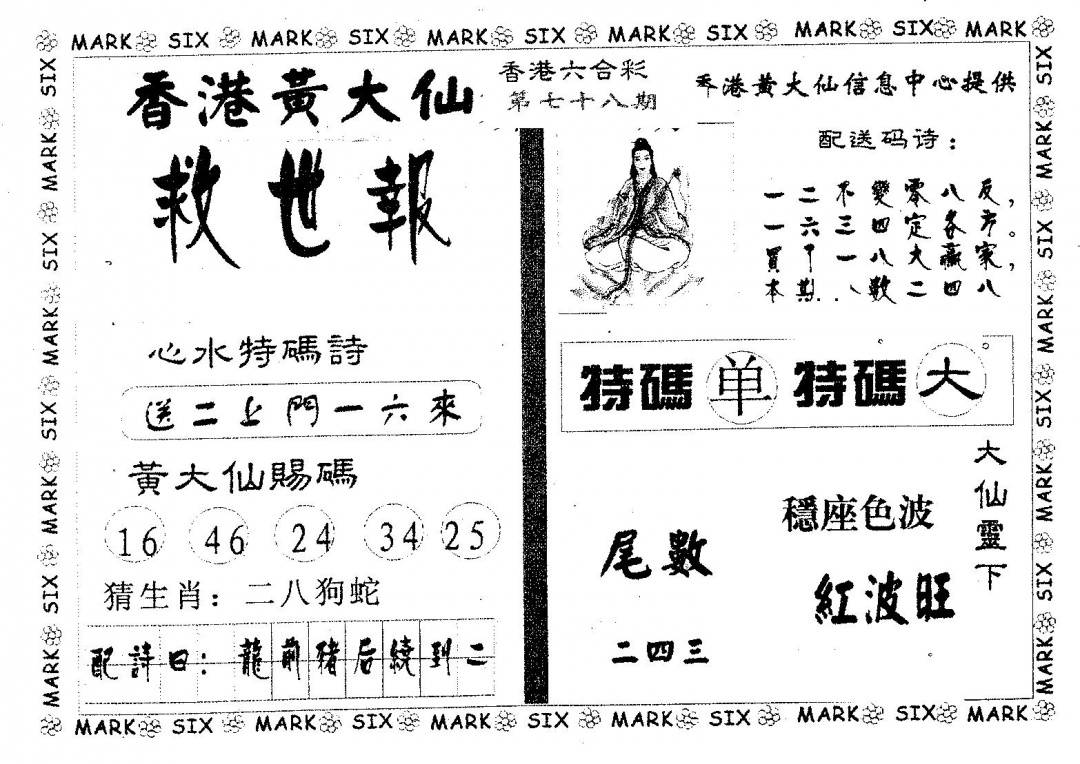 MARK SIX MARK SIX MARK SIX MARK SIX MARK SIX MARK
香港黃大仙
救世報
香港六合彩
第七十八期
香港黃大仙信息中心提供
配送码诗：
一二不變零八反，
一六三四定各方。
買 一八大贏家，
本期 數二四八
心水特碼詩
送二上門一六來
特碼 单 特碼 大
黃大仙賜碼
16 46 24 34 25
猜生肖：二八狗蛇
配詩曰：龍前豬后繞到二
尾數
二四三
穩座色波
紅波旺
大仙靈下
MARK SIX MARK SIX MARK SIX MARK SIX MARK SIX MARK
SIX MARK SIX MARK SIX MARK SIX MARK
SIX MARK SIX MARK SIX MARK SIX MARK